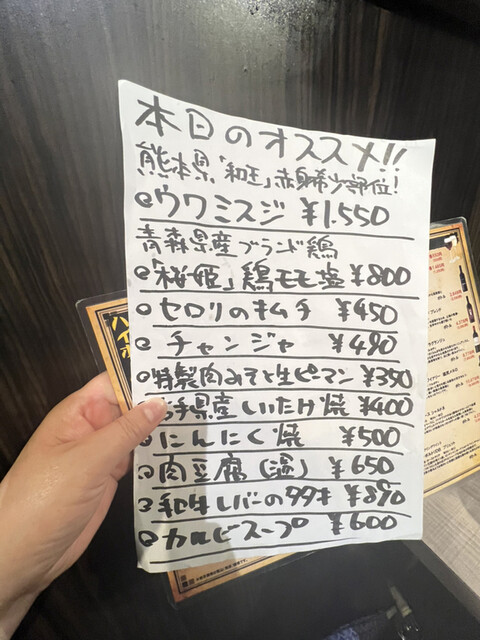 本日のオススメ!!
熊本県、「和王」赤身希少部位!
ウワミスジ ¥1.550
青森県産ブランド鶏
「桜姫」鶏モモ塩 ¥800
セロリのキムチ ¥450
チャンジャ ¥490
特製肉みそと生ピーマン ¥350
手県産しいたけ焼 ¥400
にんにく焼 ¥500
肉豆腐(温) ¥650
和牛レバーのタタキ ¥890
カルビスープ ¥600